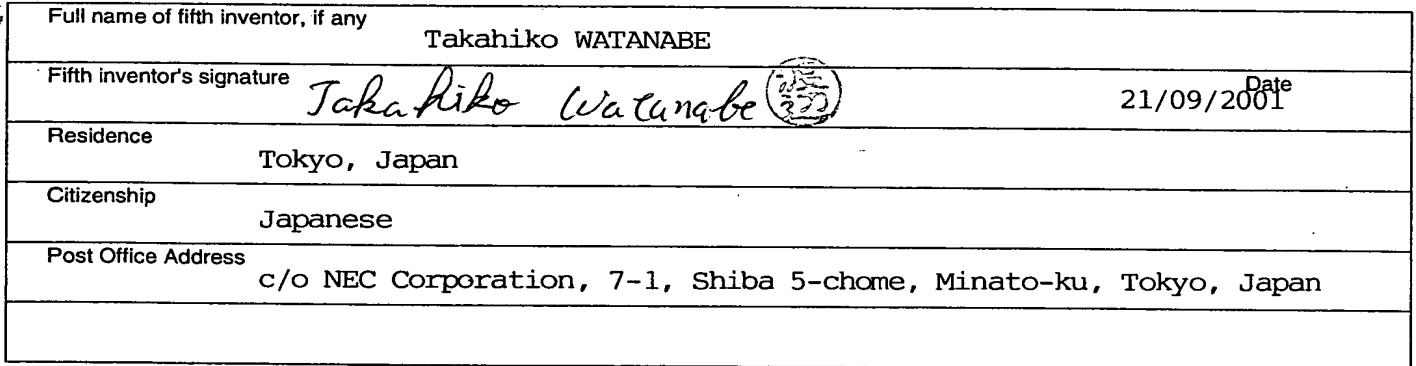 Full name of fifth inventor, if any
Takahiko WATANABE
Fifth inventor's signature Takahiko Watanabe Date
21/09/2001
Residence
Tokyo, Japan
Citizenship
Japanese
Post Office Address
c/o NEC Corporation, 7-1, Shiba 5-chome, Minato-ku, Tokyo, Japan